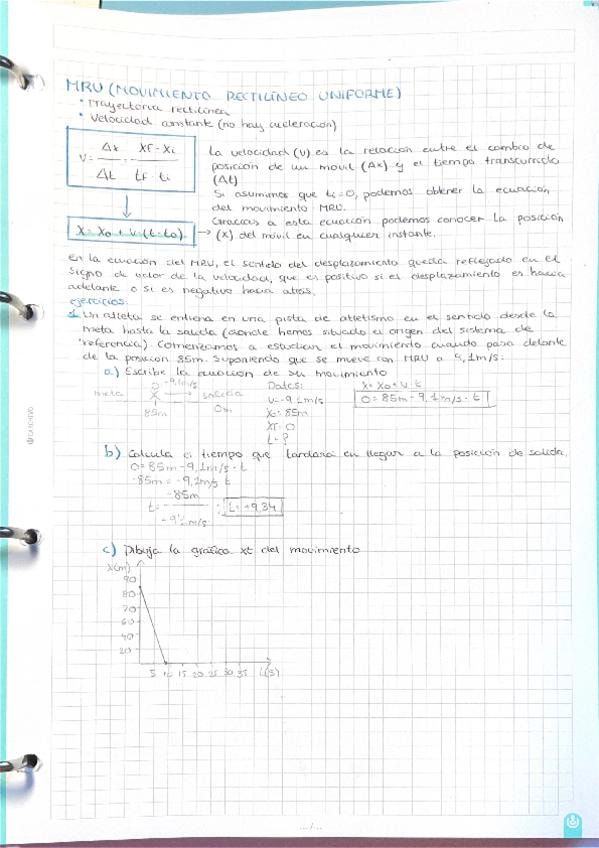 MRU (MOVIMIENTO RECTILÍNEO UNIFORME)
• Trayectoria rectilínea
• Velocidad constante (no hay aceleración)
V = Δx / Δt = xF - xi / tF - ti
La velocidad (v) es la relación entre el cambio de
posición de un móvil (Δx) y el tiempo transcurrido
(Δt)
Si asumimos que ti=0, podemos obtener la ecuación
del movimiento MRU.
x = x0 + v (t - t0)
→ Gracias a esta ecuación podemos conocer la posición
(x) del móvil en cualquier instante.
En la ecuación del MRU, el sentido del desplazamiento queda reflejado en el
signo de valor de la velocidad, que es positivo si el desplazamiento es hacia
adelante o si es negativo hacia atrás.
ejercicios:
Un atleta se entrena en una pista de atletismo en el sentido desde la
meta hasta la salida (donde hemos situado el origen del sistema de
referencia). Comenzamos a estudiar el movimiento cuando pasa delante
de la posición 85m. Suponiendo que se mueve con MRU a 9,1m/s:
a.) Escribe la ecuación de su movimiento
-9,1m/s
meta X → salida
85m 0m
Datos:
V=-9,1m/s
X0=85m
XF=0
t=?
x=x0+v·t
0=85m-9,1m/s·t
b) Calcula el tiempo que tardará en llegar a la posición de salida.
0=85m-9,1m/s·t
-85m=-9,1m/s t
t= -85m / -9,1m/s
9,34
c) Dibuja la gráfica xt del movimiento
X(m)
90
80
70
60
40
20
5 10 15 20 25 30 35 t(s)